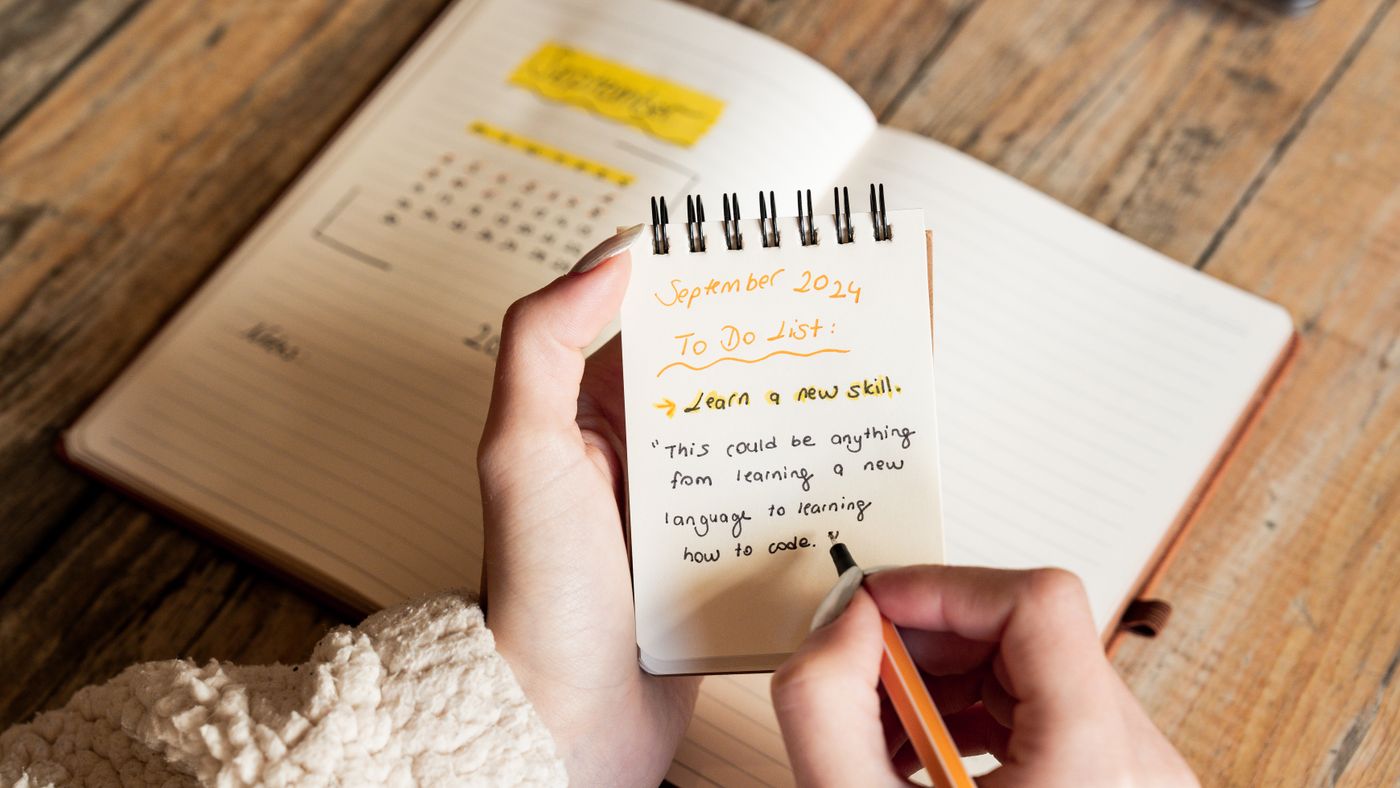 September
Notes
September 2024
To Do List:
→ Learn a new skill.
"This could be anything
from learning a new
language to learning
how to code."